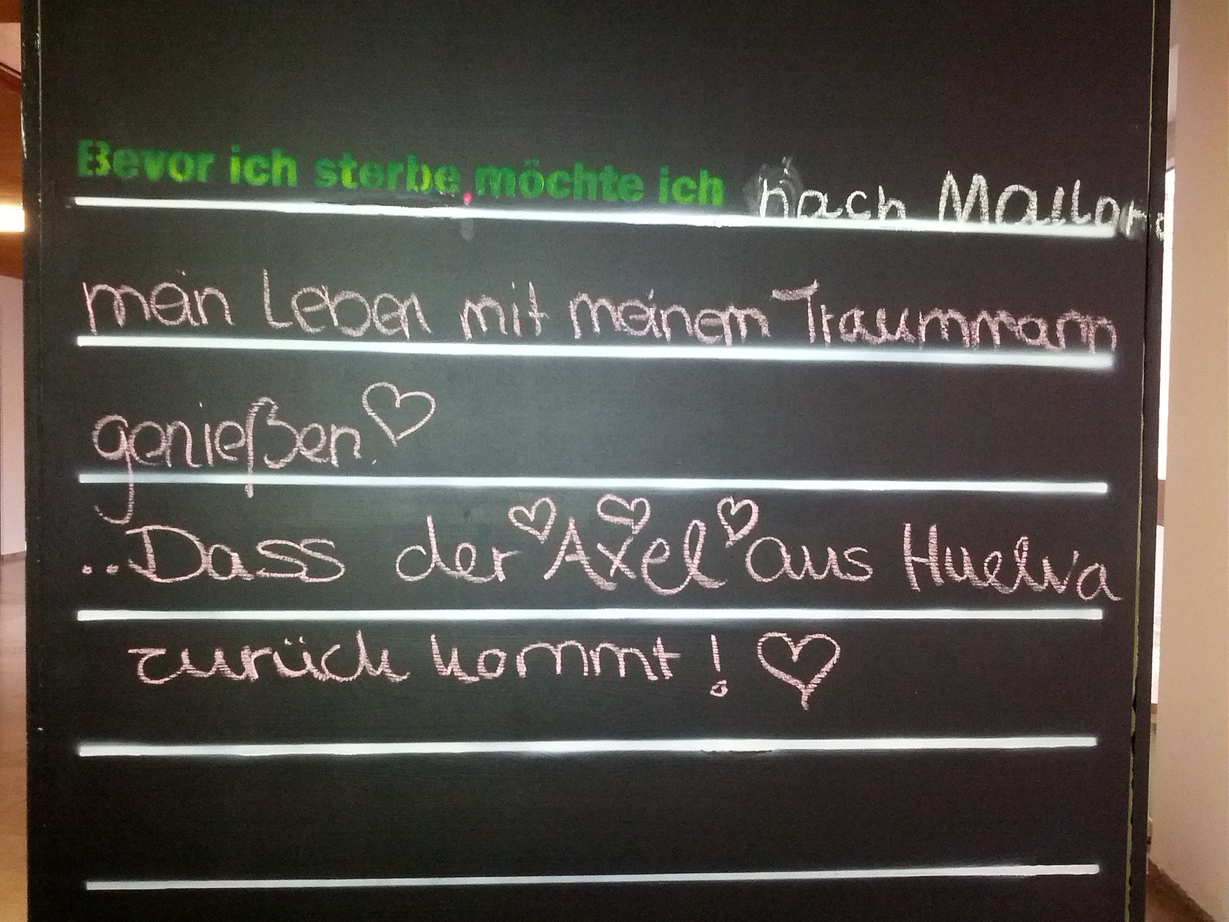 Bevor ich sterbe, möchte ich nach Mailand
mein Leben mit meinem Traummann
genießen.
..Dass der Axel aus Huelva
zurück kommt!